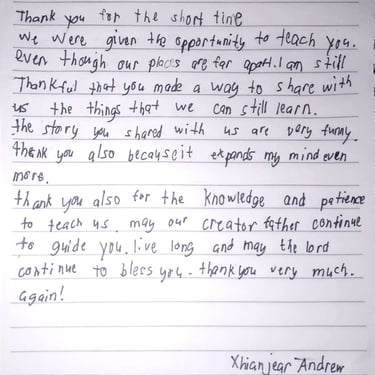 Thank you for the short time
We were given the opportunity to teach you.
even though our places are far apart. I am still
Thankful that you made a way to share with
us the things that we can still learn.
the story you shared with us are very funny.
thenk you also becauseit expands my mind even
more.
thank you also for the knowledge and patience
to teach us. may our creator father continue
to guide you. live long and may the lord
continue to bless you. thankyou very much.
again!
Xhianjear Andrew